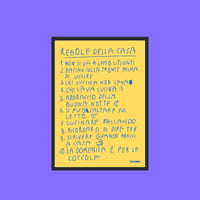 REGOLE DELLA CASA
1. NON SI VA A LETTO LITIGATI
2. BACINO SULLA FRONTE PRIMA
DI USCIRE
3. CHI CUCINA NON LAVA
4. CHI LAVA CUCINA :)
5. ABBRACCIO DELLA
BUONA NOTTE
6. SI PUÒ SALTARE SUL
LETTO
7. CUCINARE BALLANDO
8. RICORDARSI DI DIRE TVB
9. SCRIVERE QUANDO ARRIVI
A CASA
10. LA DOMENICA È PER LE
COCCOLE